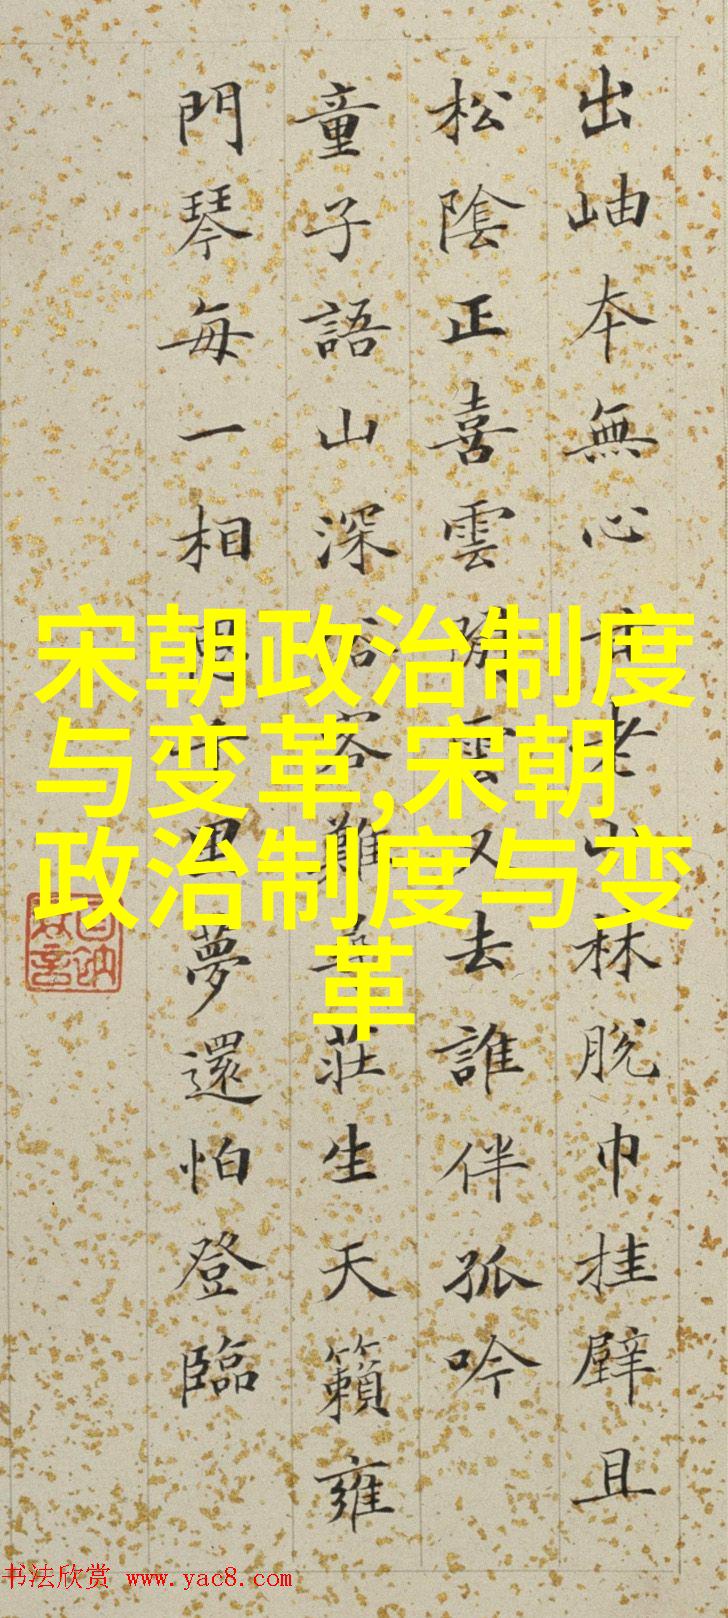 出岫本無心老林脱巾挂壁且
松陰正喜雲雲又去誰伴孤吟
童子語山深俗客難尋莊生天籟雍
門琴每一相思千里夢還怕登臨
宋朝政治制度
与变革,宋朝
政治制度与变
革
书法欣赏 www.yac8.com